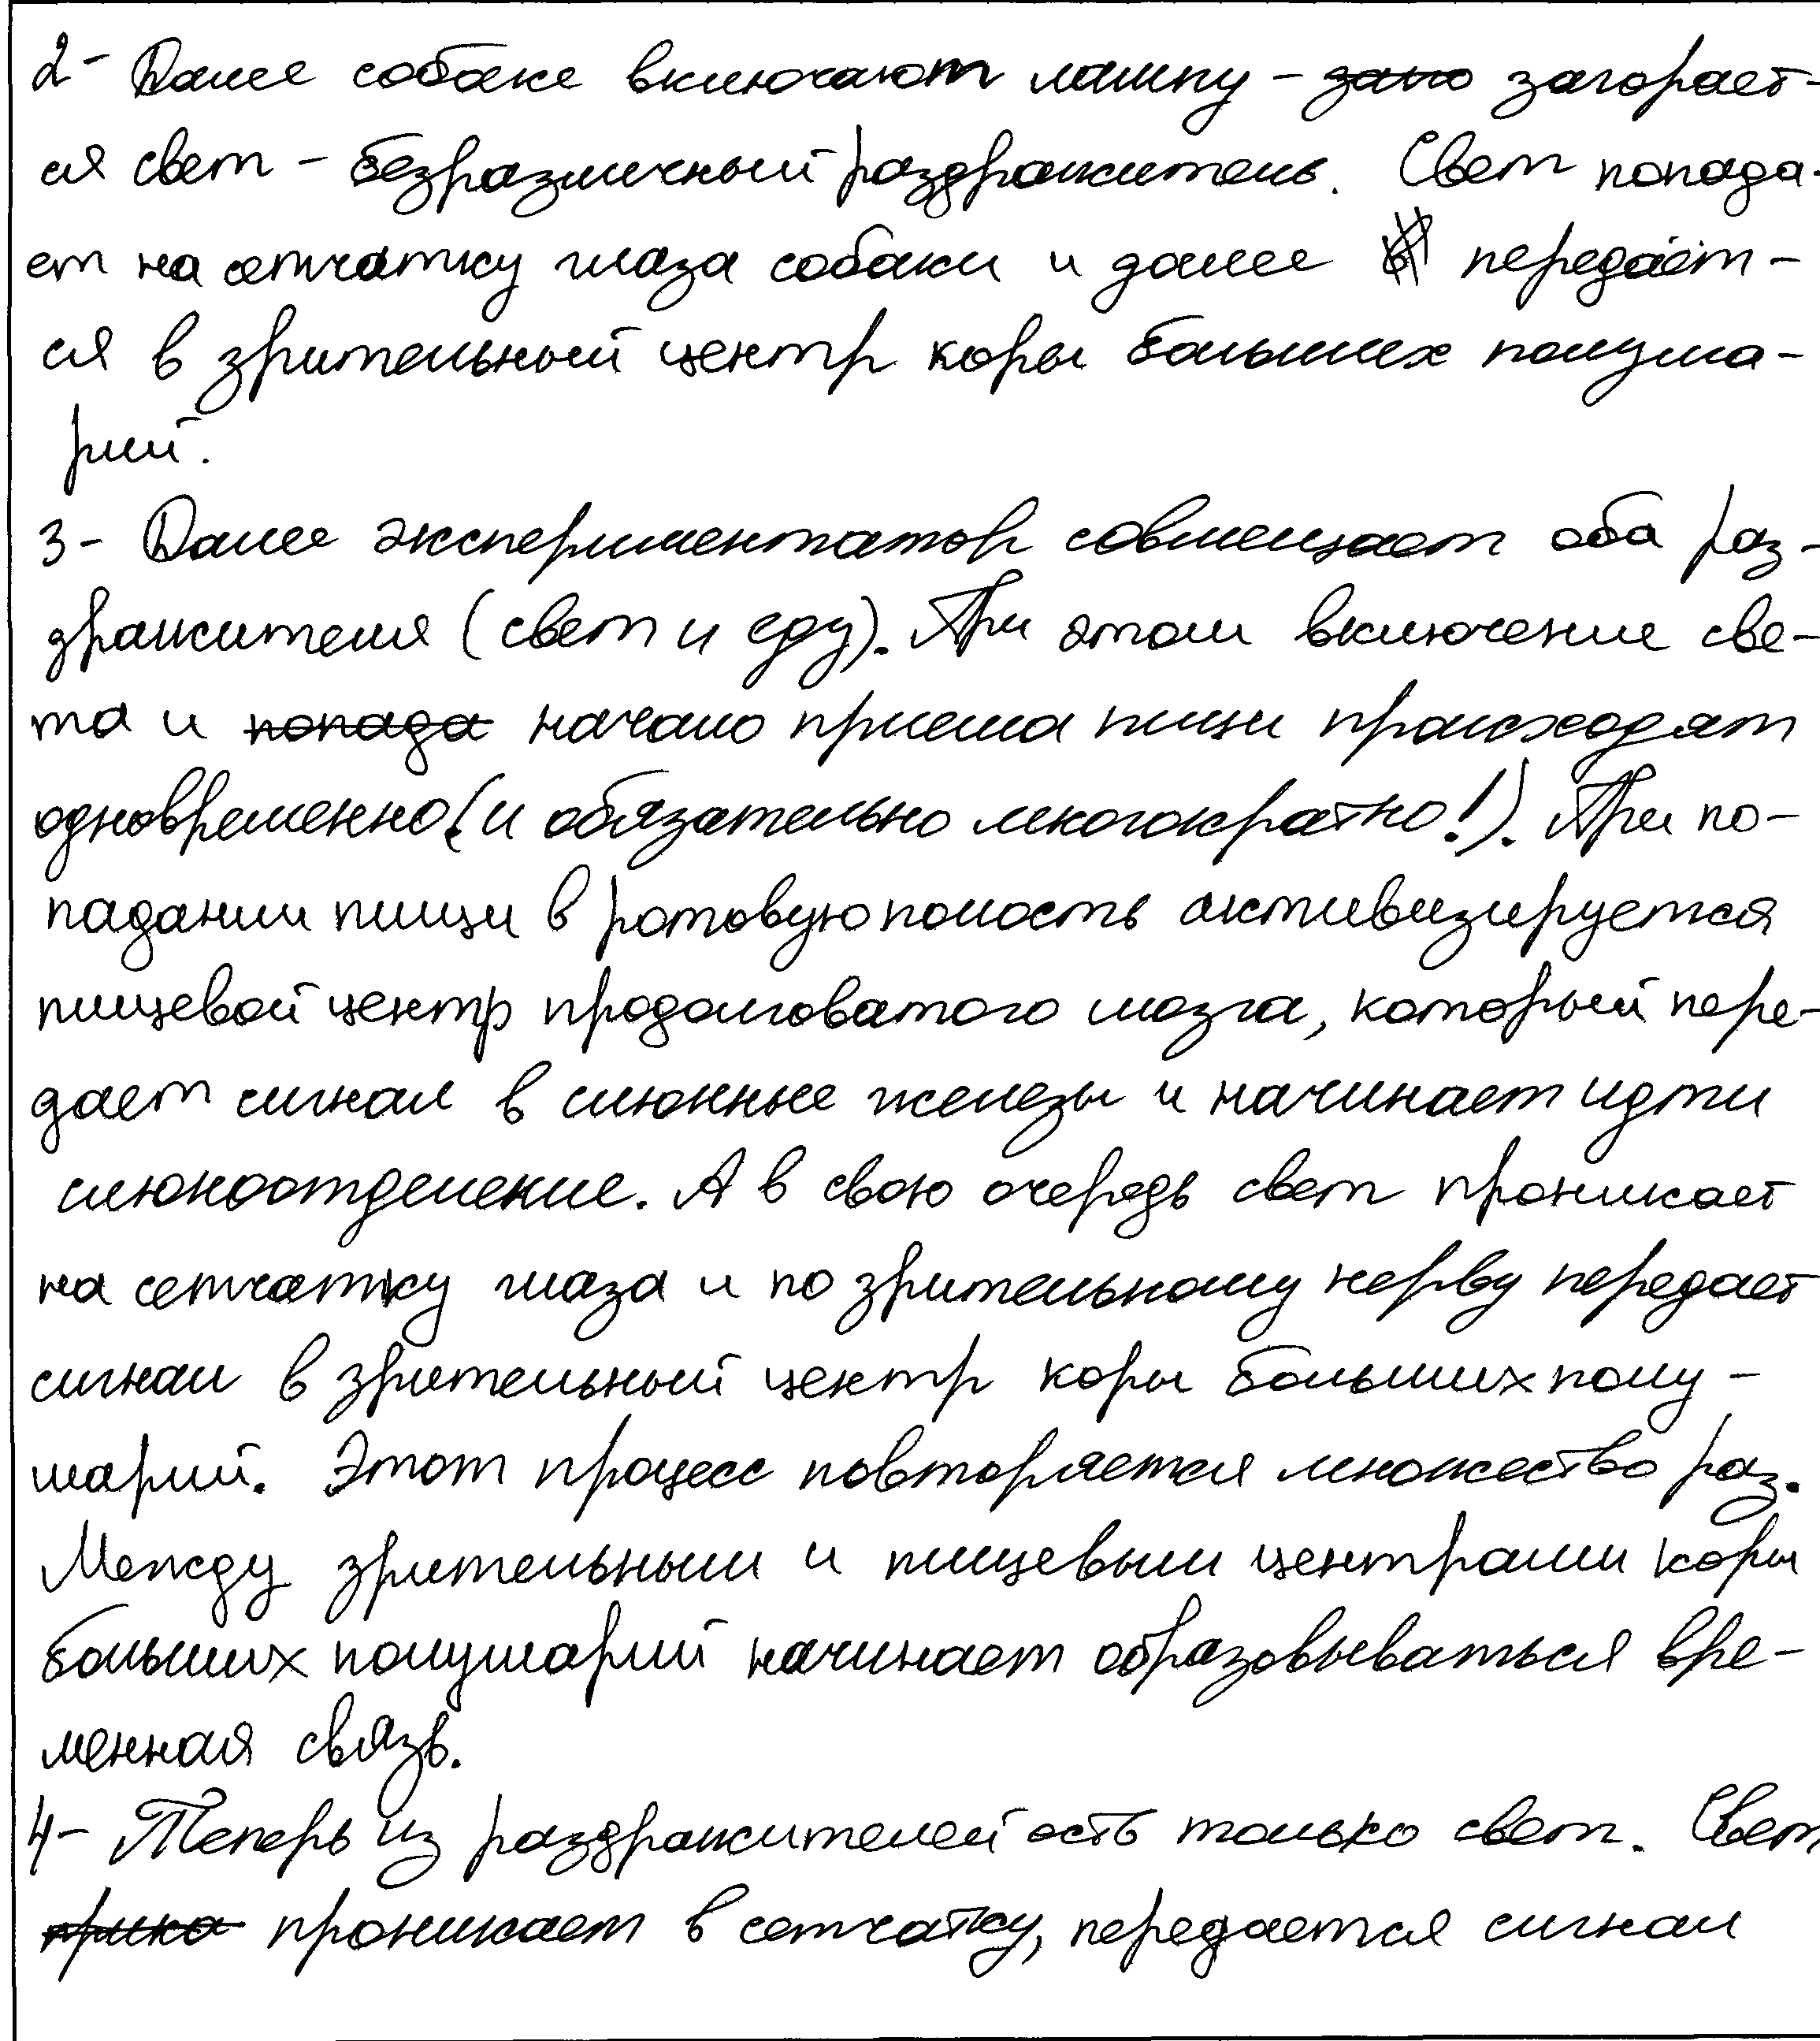 2- Далее собаке включают лампу - заго загорает-
ся свет - безразличный раздражитель. Свет попада-
ет на сетчатку глаза собаки и далее передаёт-
ся в зрительный центр коры больших полуша-
рий.
3- Далее экспериментатор совмещает оба раз-
дражителя (свет и еду). При этом включение све-
та и попада начало приема пищи происходят
одновременно (и обязательно многократно!). При по-
падании пищи в ротовую полость активизируется
пищевой центр продолговатого мозга, который пере-
дает сигнал в слюнные железы и начинает идти
слюноотделение. А в свою очередь свет проникает
на сетчатку глаза и по зрительному нерву передает
сигнал в зрительный центр коры больших полу-
шарий. Этот процесс повторяется множество раз.
Между зрительным и пищевым центрами коры
больших полушарий начинает образовываться вре-
менная связь.
4- Теперь из раздражителей есть только свет. Свет
проникает в сетчатку, передается сигнал